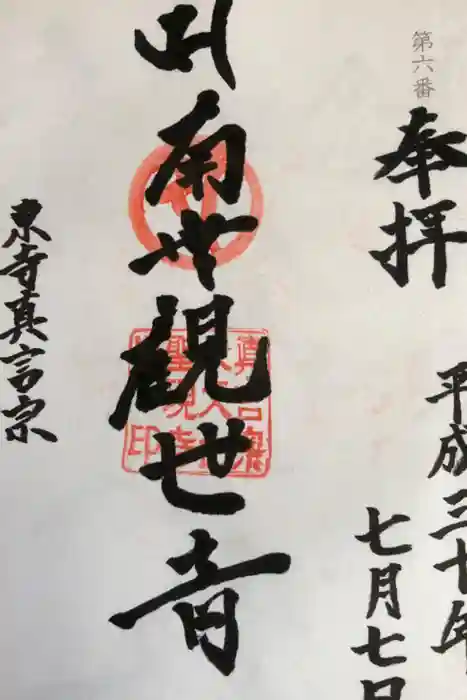 第六番
奉拝
平成三十年
七月七日
南無観世音
東寺真言宗